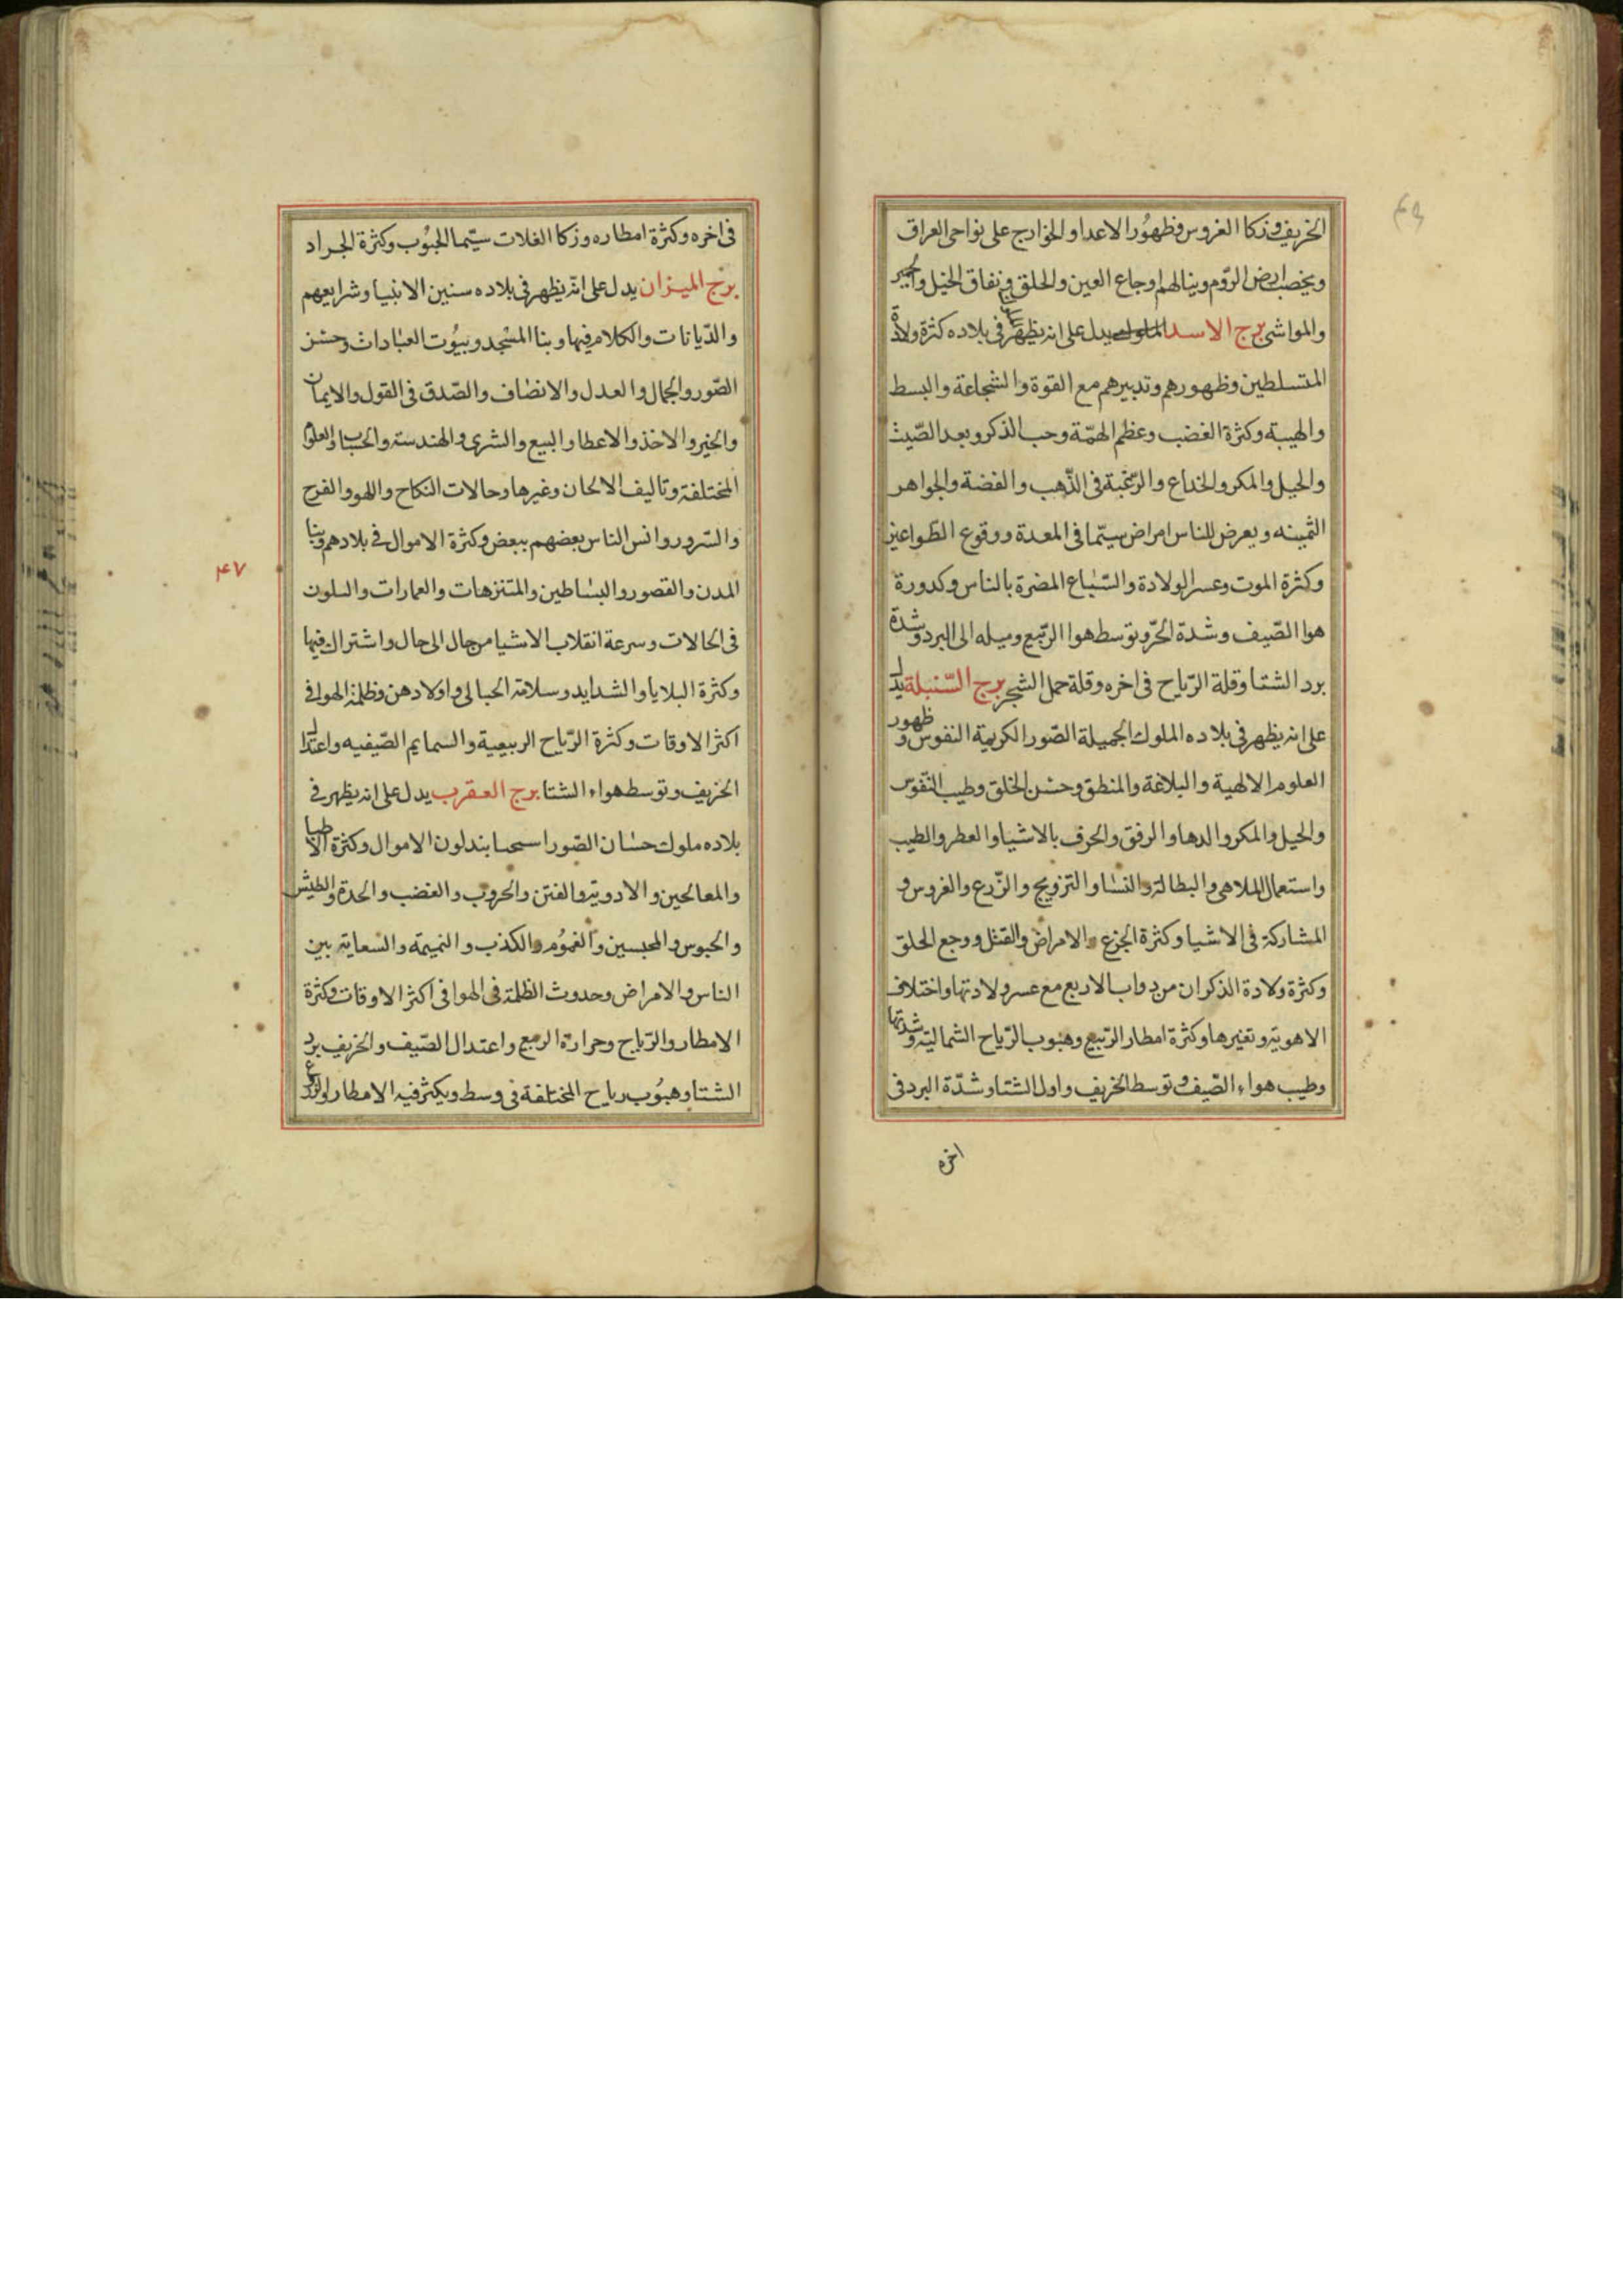 الخريف وزكا الغروس وظهور الاعدا والخوارج على نواحى العراق
ويخصب ارض الروم وينالهم اوجاع العين والحلق ونفاق الخيل والحمير
والمواشى برج الاسد يدل على انه يظهر فى بلاده كثرة ولاة
المتسلطين وظهورهم وتدبيرهم مع القوة والشجاعة والبسط
والهيبة وكثرة الغضب وعظم الهمّة وحب الذكر وبعد الصّيت
والحيل والمكر والخداع والرّغبة فى الذّهب والفضة والجواهر
الثمينه ويعرض للناس امراض سيّما فى المعدة ووقوع الطواعين
وكثرة الموت وعسر الولادة والسّباع المضرة بالناس وكدورة
هوا الصّيف وشدة الحرّ وتوسط هوا الرّبيع وميله الى البرد وشدة
برد الشتا وقلة الرّياح فى اخره وقلة حمل الشجر برج السّنبلة يدل
على انه يظهر فى بلاده الملوك الجميلة الصّور الكريمة النفوس وظهور
العلوم الالهية والبلاغة والمنطق وحسن الخلق وطيب النّفوس
والحيل والمكر والدها والرفق والحرف بالاشيا والعطر والطيب
واستعمال الملاهى والبطالة والنسا والتزويج والزّرع والغروس و
المشاركة فى الاشيا وكثرة الجزع والامراض والقتل ووجع الحلق
وكثرة ولادة الذكران من دواب الاربع مع عسر ولادتها واختلاف
الاهوية وتغيرها وكثرة امطار الرّبيع وهبوب الرّياح الشمالية وشدتها
وطيب هواء الصّيف وتوسط الخريف واول الشتا وشدّة البرد فى
اخره
فى اخره وكثرة امطاره وزكا الغلات سيّما الحبُوب وكثرة الجراد
برج الميزان يدل على انّه يظهر فى بلاده سنين الانبيا وشرايعهم
والدّيانات والكلام فيها وبنا المسْجد وبيُوت العبادات وحسن
الصّور والجمال والعدل والانصاف والصّدق فى القول والايمان
والخير والاخذ والاعطا والبيع والشرى والهندسة والحساب والعلوم
المختلفة وتاليف الالحان وغيرها وحالات النكاح واللهو والفرح
والسّرور وانس الناس بعضهم ببعض وكثرة الاموال فى بلادهم وبنا
المدن والقصور والبساطين والمتنزهات والعمارات والتلون
فى الحالات وسرعة انقلاب الاشيا من حال الى حال واشتراك فيها
وكثرة البلايا والشدايد وسلامة الحبالى واولادهن وظلمة الهوا فى
اكثر الاوقات وكثرة الرّياح الربيعية والسمايم الصّيفيه واعتدال
الخريف وتوسط هواء الشتا برج العقرب يدل على انه يظهر فى
بلاده ملوك حسان الصّور يبذلون الاموال وكثرة الاطبا
والمعالجين والادوية والفتن والحروب والغضب والحدة والطيش
والحبوس والمحبسين والغمُوم والكذب والنميمة والسعاية بين
الناس والامراض وحدوث الظلمة فى الهوا فى اكثر الاوقات وكثرة
الامطار والرّياح وحرارة الربيع واعتدال الصّيف والخريف برد
الشتا وهبُوب رياح المختلفة فى وسط ويكثر فيه الامطار والزرع
۴۷